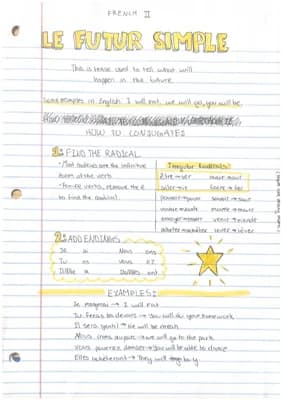 FRENCH II
LE FUTUR SIMPLE
This is tense used to tell what will
happen in the future
Some examples in English: I will eat, we will go, you will be.
HOW TO CONJUGATE
1: FIND THE RADICAL
- Most radicals are the infinitive
form of the verb
- For -re verbs, remove the e
to find the radical.
Irregular Radicals
Être → ser
aller → ir
faire → fer
pouvoir → pourr
savoir → saur
vouloir → voudr
mourir → mourr
envoyer → enverr
venir → viendr
acheter → achèter
lever → lèver
2: ADD ENDINGS
Je ai Nous ons
Tu as Vous ez
Il/Elle a Ils/Elles ont
EXAMPLES:
Je mangerai → I will eat
Tu feras tes devoirs → You will do your homework
Il sera gentil → He will be
Nous irons au parc → we will go to the park
Vous pourrez danser → You will be able to dance
Elles achèteront → They will buy